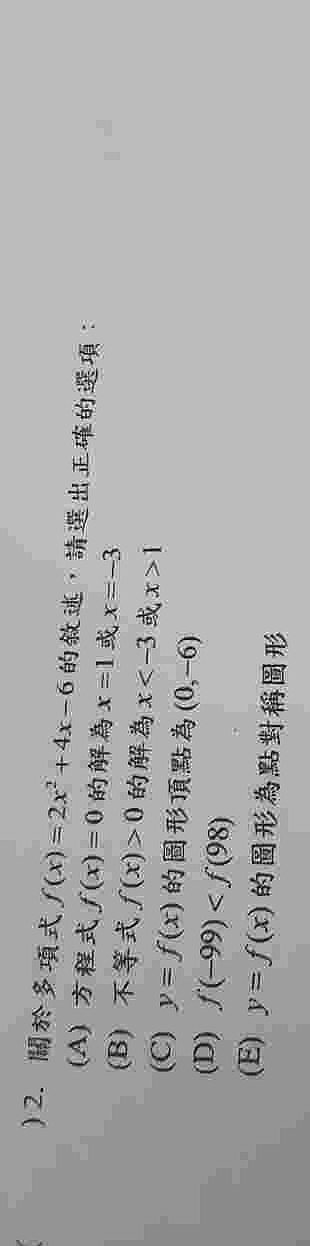 ) 2. 關於多項式 f(x)=2x²+4x-6 的敘述，請選出正確的選項：
(A) 方程式 f(x)=0 的解為 x=1 或 x=-3
(B) 不等式 f(x)>0 的解為 x<-3 或 x>1
(C) y=f(x) 的圖形頂點為 (0,-6)
(D) f(-99)<f(98)
(E) y=f(x) 的圖形為點對稱圖形